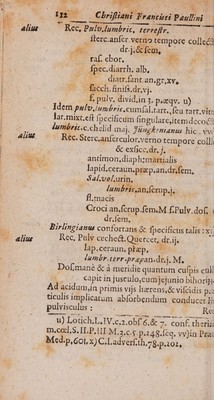 132 Christiani Francisci Paullini
alius Rec. Pulv. lumbric. terrestr.
sterc. anser verno tempore collect
dr. j. & sem.
ras. ebor.
spec. diarrh. alb.
diatr. sant. an. gr. xv.
sacch. finiss. dr. vj.
f. pulv. divid. in ʒ. part. æqv. u)
Idem pulv. lumbric. cum sal. tart. seu tart. vitr
lar. mixt. est specificum singulare, item de coct
lumbric. c. chelid maj. Jüngkenianus hic. vv
alius Rec. Sterc. anser. color. verno tempore coll
& exsicc. dr. j.
antimon. diaph. martialis
lapid. ceraun. præp. an. dr. sem.
Sal. vol. urin.
lumbric. an. scrup. j.
fl. macis
Croci an. scrup. sem. M f. Pulv. dos
dr. sem.
Birlingianus confortans & specificus talis: x
alius Rec. Pulv cechect. Quercet. dr. ij.
lap. ceraun. præp.
lumbr. terr. præp. an dr. j. M.
Dosmanè & à meridie quantum cuspis cult
capit in justulo, cum jejunio bihorij
Ad acidum, in primis vijs hærens, & viscidis pa
ticulis implicatum absorbendum conducet
pulvisculus :
Re
u) Lotich. L. IV. c. 2. obs. 6. & 7. conf. theria
m. cœl. S. II. P. III M. 3. c. 5. p. 148. seq. vv) in Prax
Med. p. 601. x) C. I. advers. th. 78. p. 102.